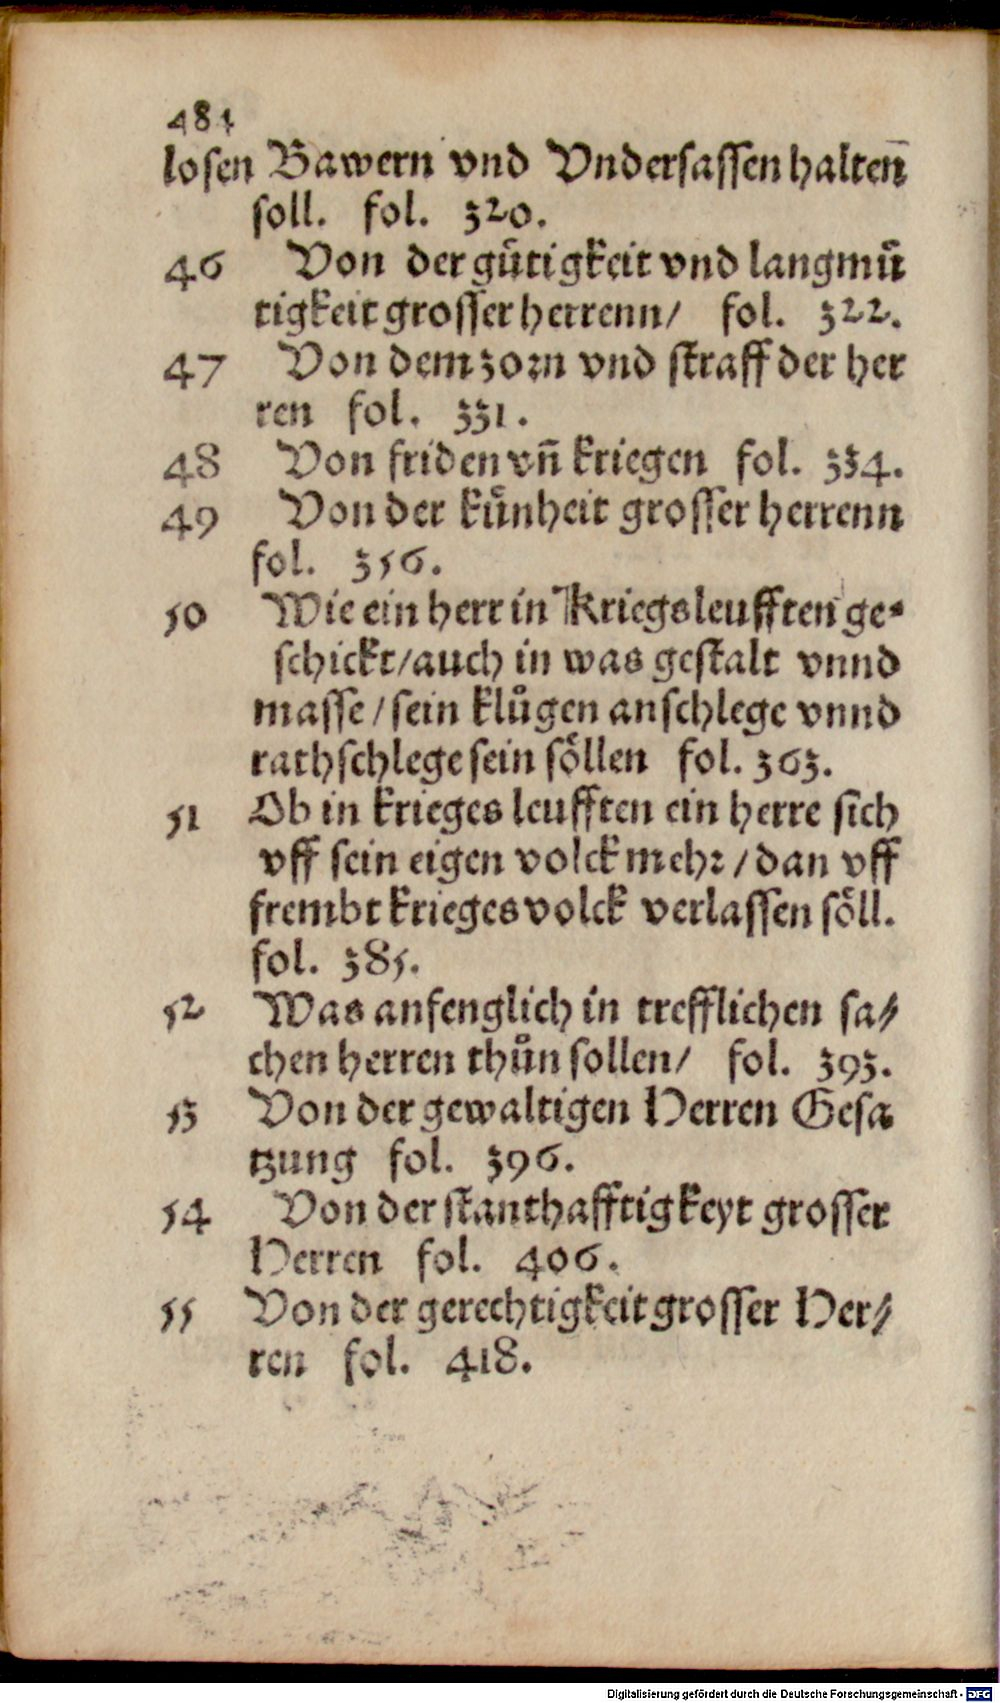 484
losen Bawern vnd Vndersassen halten̄
soll. fol. 320.
46 Von der gütigkeit vnd langmü
tigkeit grosser herrenn/ fol. 322.
47 Von dem zorn vnd straff der her
ren fol. 331.
48 Von friden vñ kriegen fol. 334.
49 Von der kůnheit grosser herrenn
fol. 356.
50 Wie ein herr in Kriegsleufften ge-
schickt/auch in was gestalt vnnd
masse/sein klůgen anschlege vnnd
rathschlege sein söllen fol. 363.
51 Ob in krieges leufften ein herre sich
vff sein eigen volck mehr/dan vff
frembt krieges volck verlassen söll.
fol. 385.
52 Was anfenglich in trefflichen sa⸗
chen herren thůn sollen/ fol. 393.
53 Von der gewaltigen Herren Gesa
tzung fol. 396.
54 Von der stanthafftigkeyt grosser
Herren fol. 406.
55 Von der gerechtigkeit grosser Her⸗
ren fol. 418.
Digitalisierung gefördert durch die Deutsche Forschungsgemeinschaft - DFG